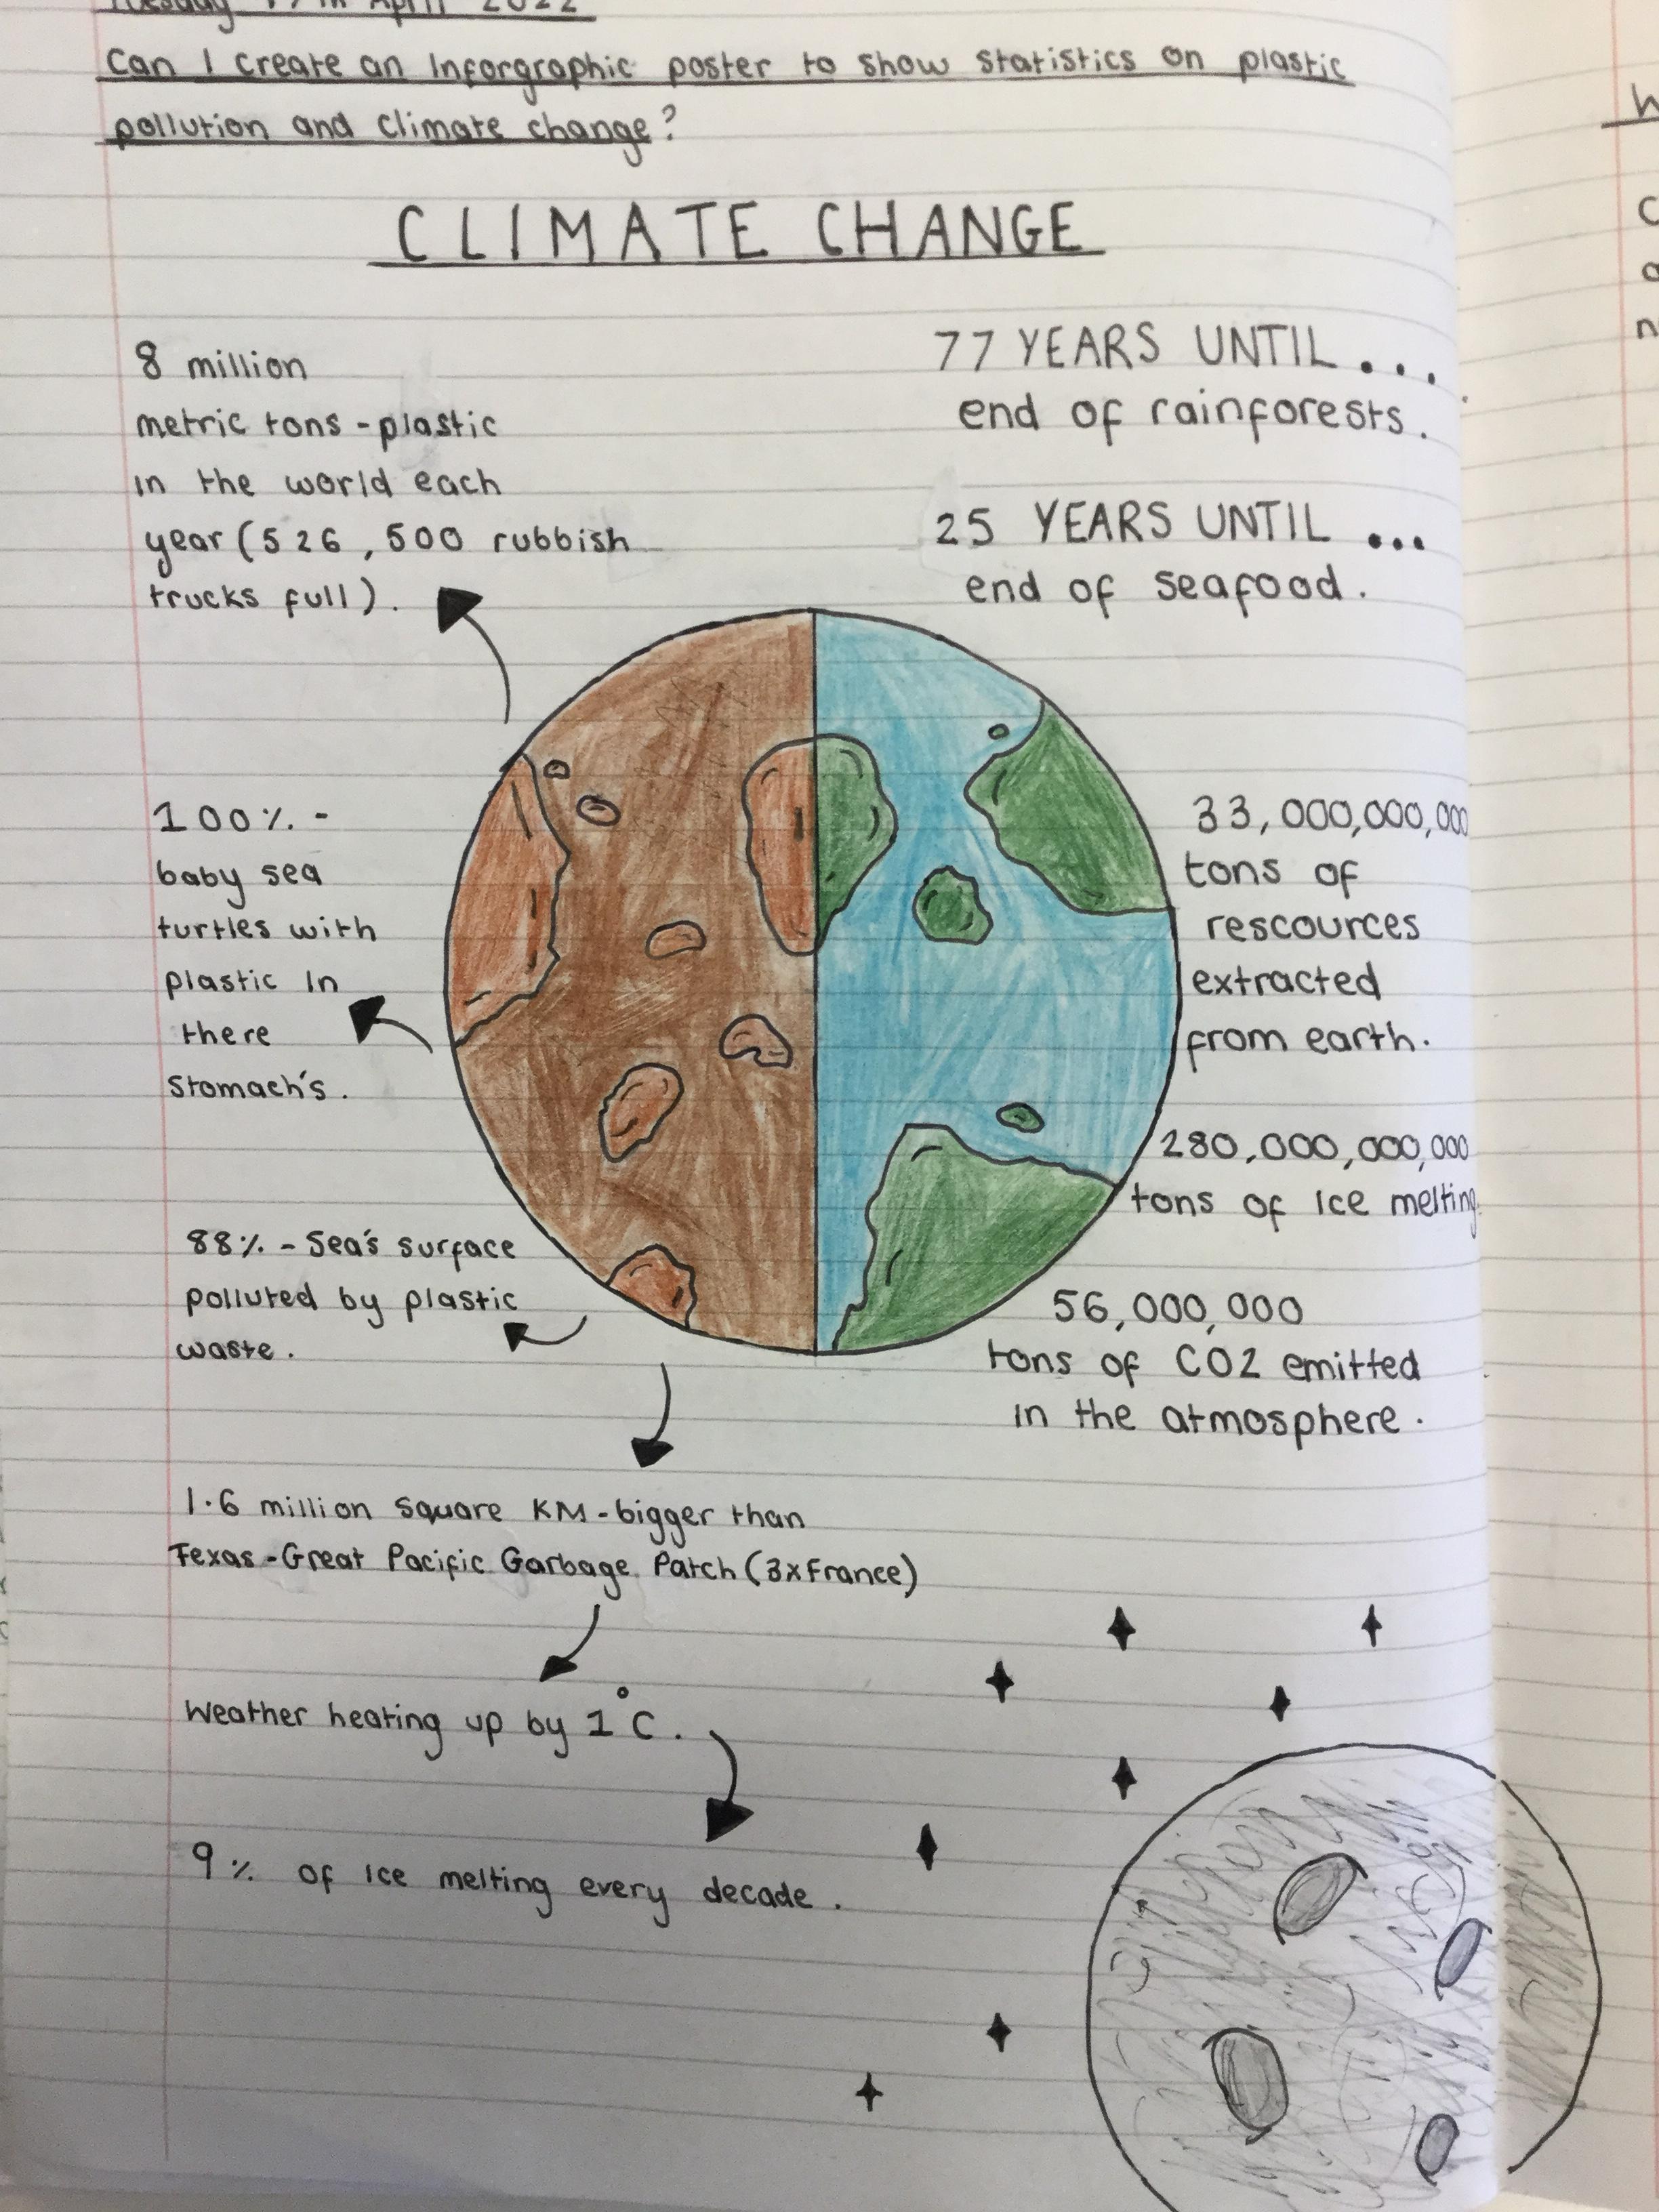 Tuesday April 2022
Can I create an Inforgraphic poster to show statistics on plastic
pollution and climate change?
CLIMATE CHANGE
8 million
metric tons - plastic
in the world each
year (526,500 rubbish
trucks full).
77 YEARS UNTIL...
end of rainforests.
25 YEARS UNTIL...
end of seafood.
100% -
baby sea
turtles with
plastic In
there
Stomach's.
33,000,000,000
tons of
rescources
extracted
from earth.
280,000,000,000
tons of Ice melting.
88% - Sea's surface
polluted by plastic
waste.
56,000,000
tons of CO2 emitted
in the atmosphere.
1.6 million square KM - bigger than
Texas - Great Pacific Garbage Patch (3xFrance)
Weather heating up by 1°C.
9% of Ice melting every decade.